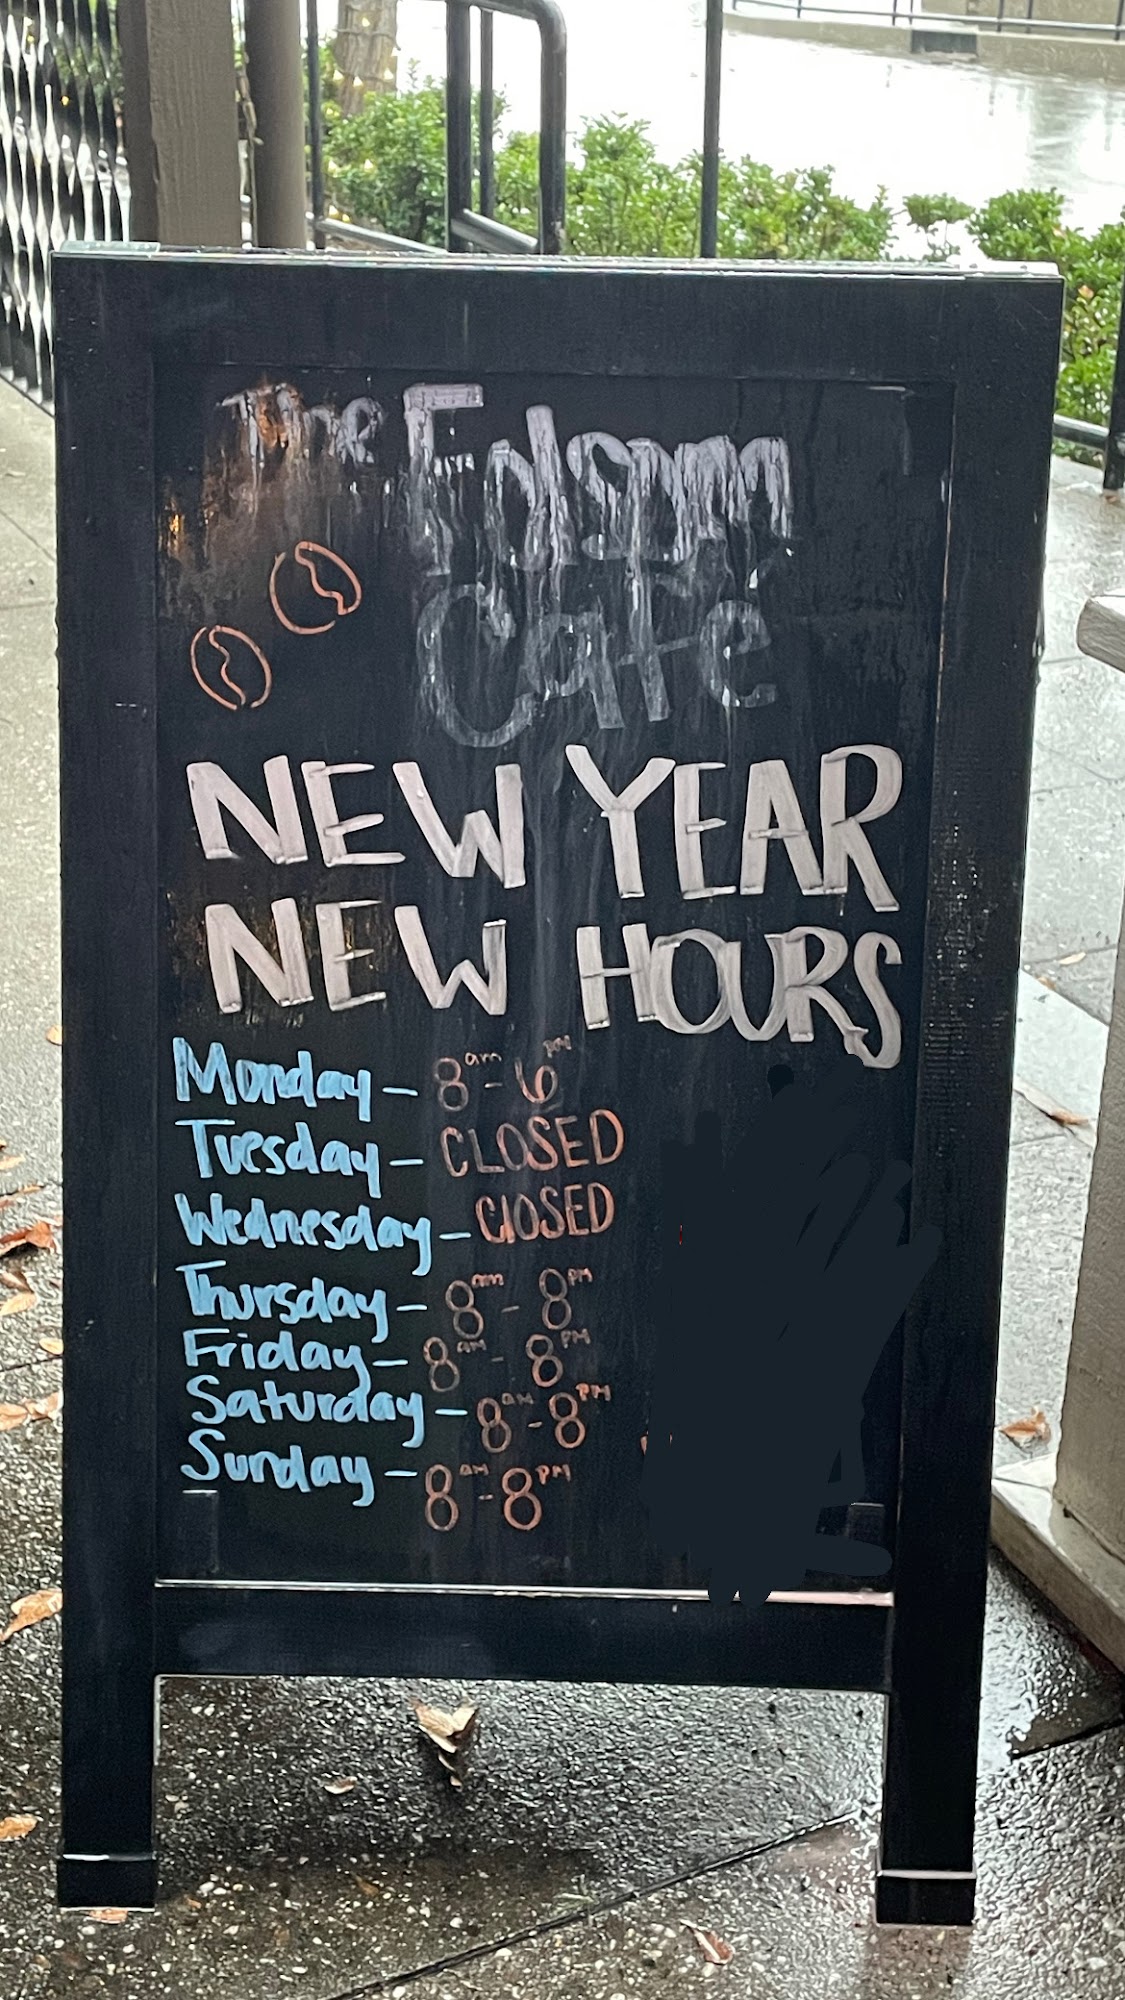 The Folsom
Café
NEW YEAR
NEW HOURS
Monday – 8am - 6PM
Tuesday – CLOSED
Wednesday – ClOSED
Thursday – 8am - 8PM
Friday – 8AM - 8PM
Saturday – 8AM - 8PM
Sunday – 8AM - 8PM